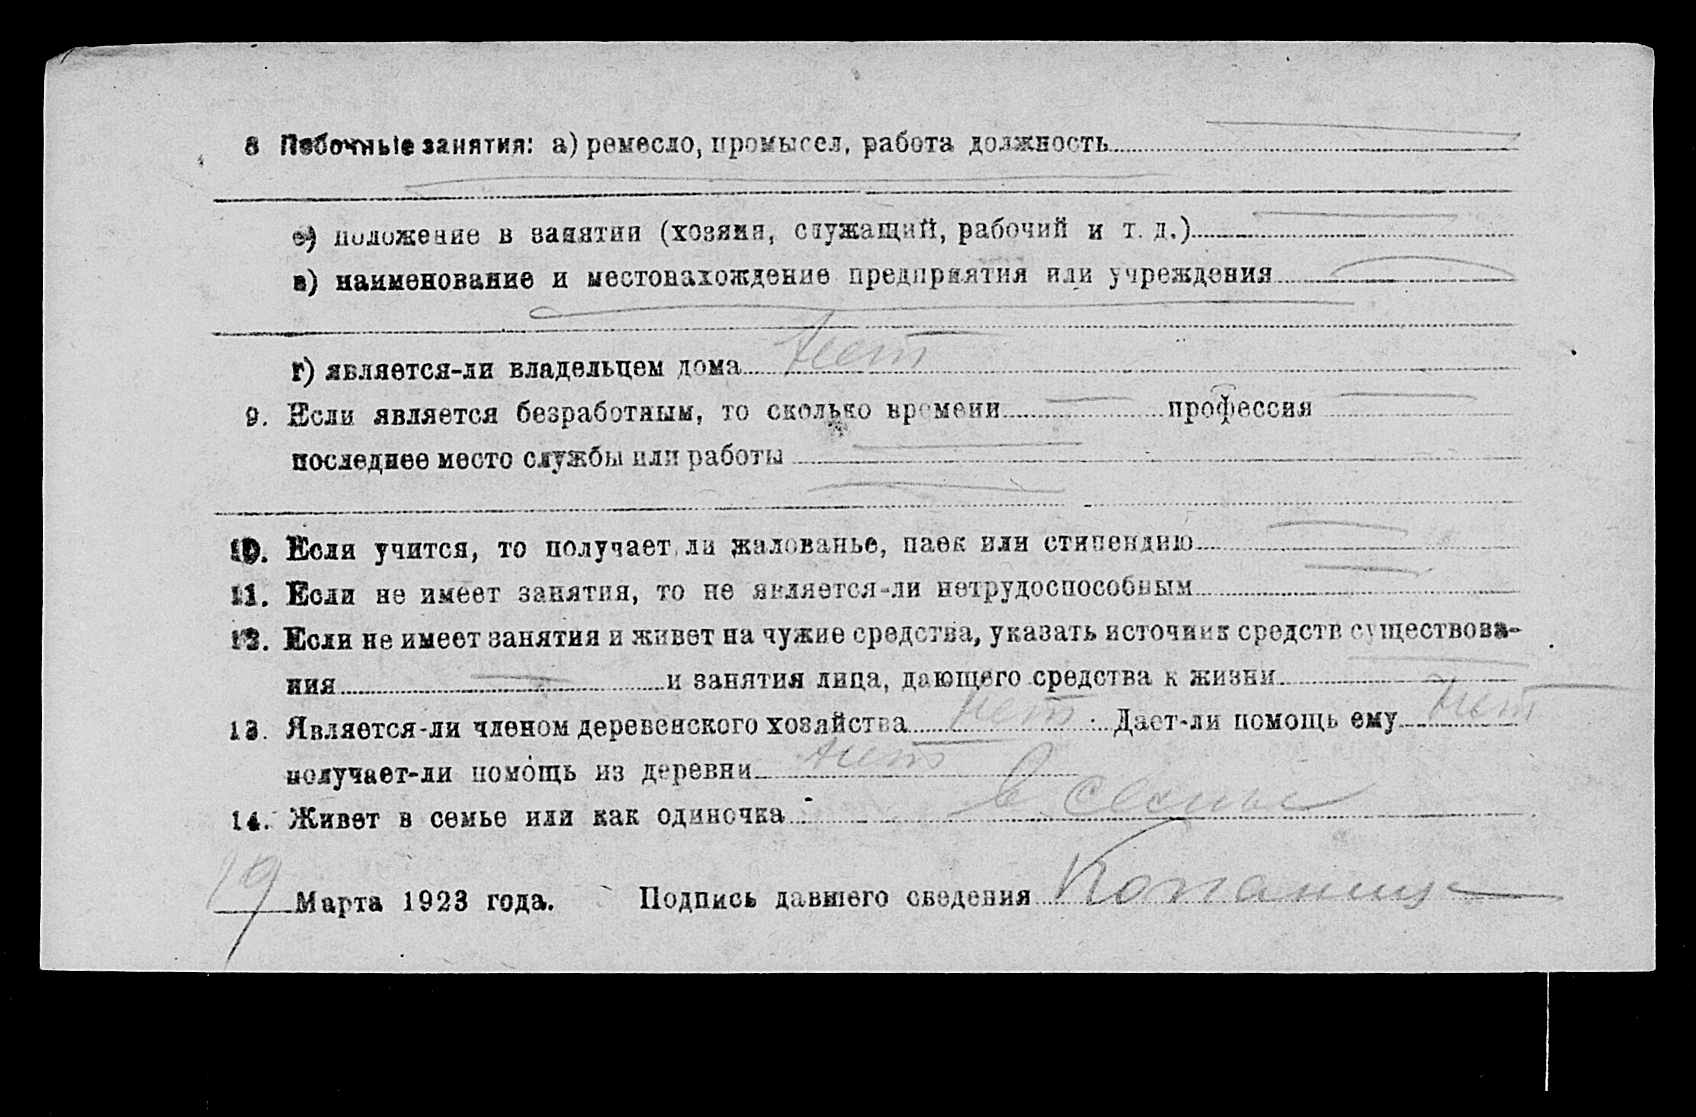 8 Побочные занятия: а) ремесло, промысел, работа должность
б) положение в занятии (хозяин, служащий, рабочий и т. д.)
в) наименование и местонахождение предприятия или учреждения
г) является-ли владельцем дома Нет
9. Если является безработным, то сколько времени профессия
последнее место службы или работы
10. Если учится, то получает ли жалованье, паек или стипендию
11. Если не имеет занятия, то не является-ли нетрудоспособным
12. Если не имеет занятия и живет на чужие средства, указать источник средств существова-
ния и занятия лица, дающего средства к жизни
13. Является-ли членом деревенского хозяйства Нет Дает-ли помощь ему Нет
получает-ли помощь из деревни Нет
14. Живет в семье или как одиночка В семье
19 Марта 1923 года. Подпись давшего сведения